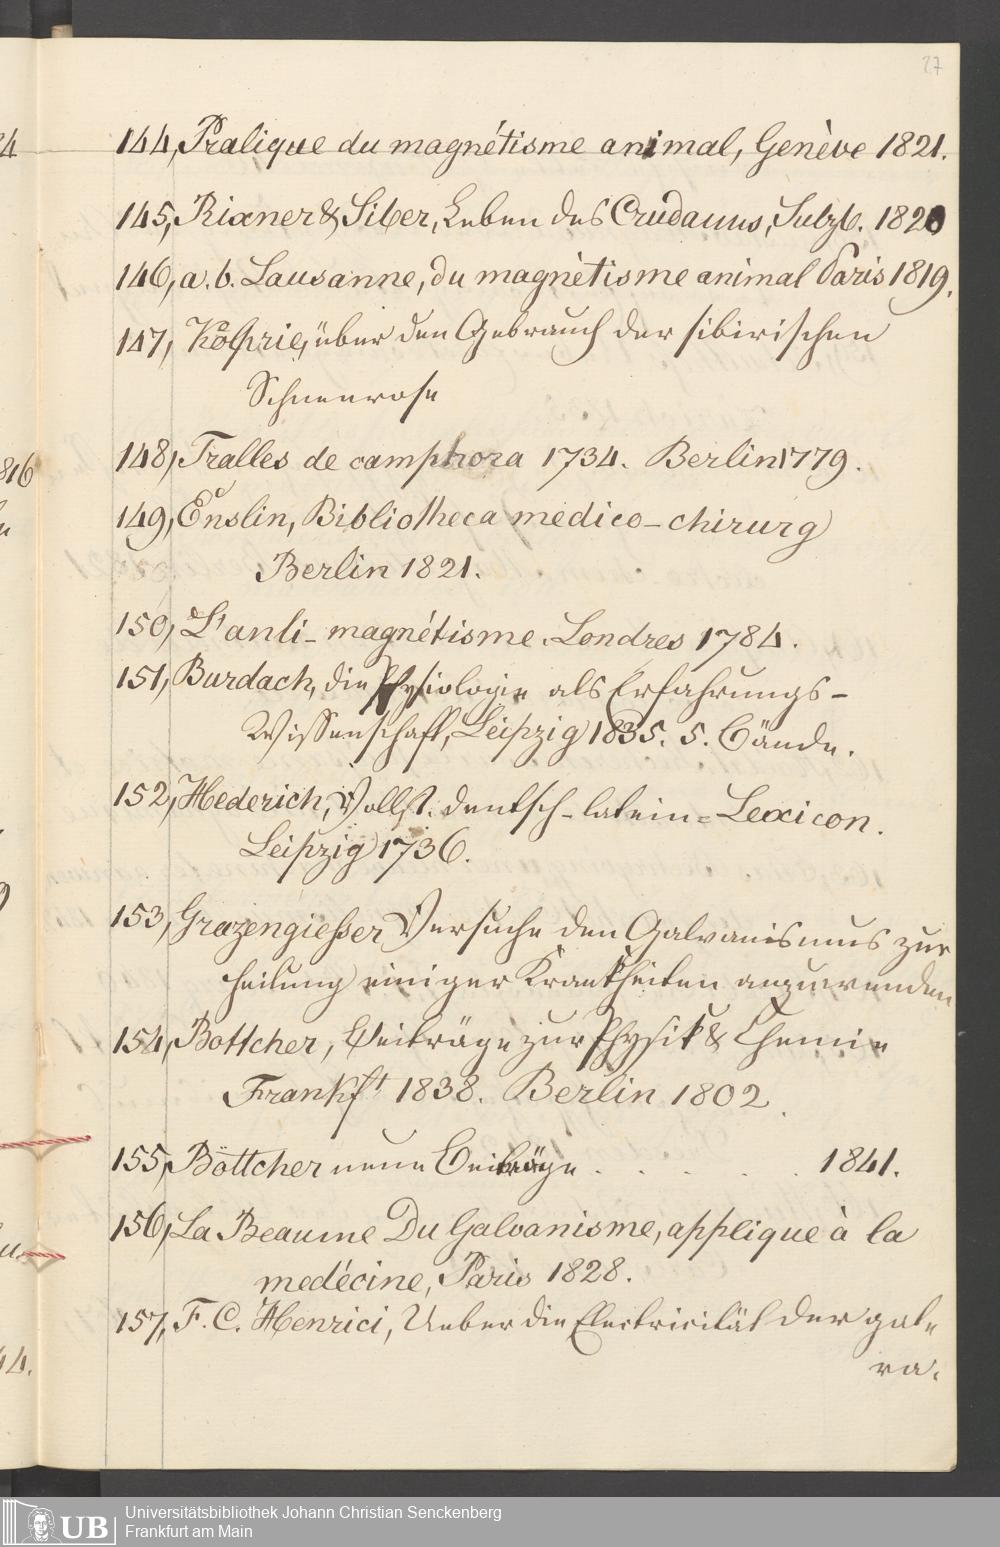 27
144, Pralique du magnétisme animal, Genève 1821.
145, Rixner & Siber, Leben des Crudanus, Sulzb. 1820
146, a. b. Lausanne, du magnétisme animal Paris 1819.
147, Kölprie, über den Gebrauch der sibirischen
Schneerose
148, Tralles de camphora 1734. Berlin 1779.
149, Enslin, Bibliotheca medico-chirurg
Berlin 1821.
150, L'anli-magnétisme. Londres 1784.
151, Burdach, die Physiologie als Erfahrungs-
Wissenschaft, Leipzig 1835. 5. Bände.
152, Hederich, Vollst. deutsch-latein= Lexicon.
Leipzig 1736.
153, Grazengiesser Versuche den Galvanismus zur
Heilung einiger Krankheiten anzuwenden
154, Bottcher, Beiträge zur Physik & Chemie
Frankft 1838. Berlin 1802.
155, Böttcher neue Beiträge . . . . . 1841.
156, La Beaume Du Galvanisme, applique à la
medécine, Paris 1828.
157, F. C. Henrici, Ueber die Electricität der gal=
va.
24
816
44.
UB
Universitätsbibliothek Johann Christian Senckenberg
Frankfurt am Main